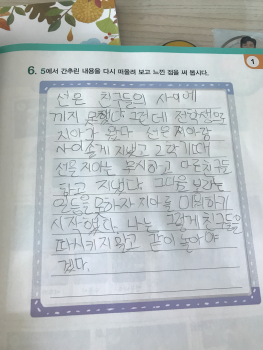 6. 5에서 간추린 내용을 다시 떠올려 보고 느낀 점을 써 봅시다.
1
선은 친구들의 사이에
끼지 못했다 그런데 전학생인
지아가 왔다 선은 지아랑
사이좋게 지냈고 2학기때
선을 지아는 무시하고 다른친구들
하고 지냈다. 그 다음 보라는
일등을 못하자 지아를 미워하기
시작했다. 나는 그렇게 친구들을
따시키지 말고 같이 놀아야
겠다.